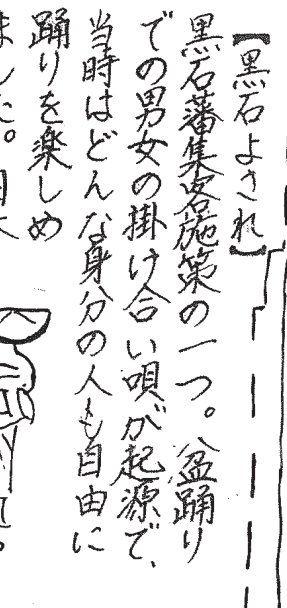 【黒石よされ】
黒石藩集客施策の一つ。盆踊り
での男女の掛け合い唄が起源で、
当時はどんな身分の人も自由に
踊りを楽しめ
ました。